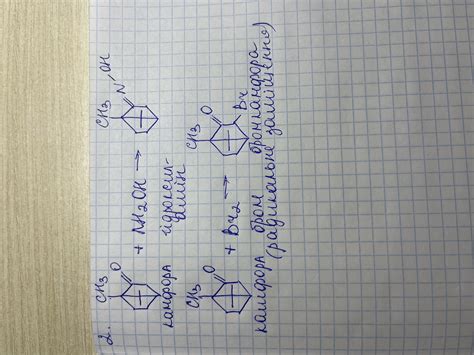 2.
CH3 O + NH2OH → CH3 N OH
камфора гідроксил-
амін
CH3 O + Br2 → CH3 O Br
камфора бром бромкамфора
(радикальне заміщення)